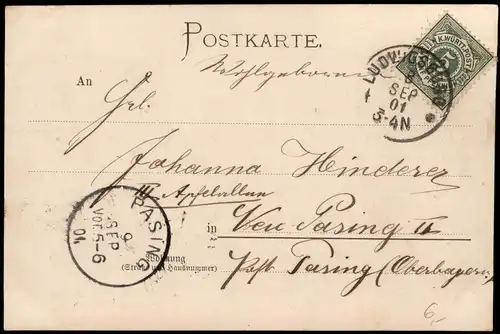 POSTKARTE.
Wohlgeboren
An
Frl.
K. WÜRTT. POST
5
LUDWIGSBURG
SEP
01
3-4N
Johanna Hinderer
II. Apfelallee
in Neu Pasing II
Wohnung
(Straße und Hausnummer)
Post Pasing (Oberbayern)
PASING
9
SEP
VOR.5-6
01
6,-